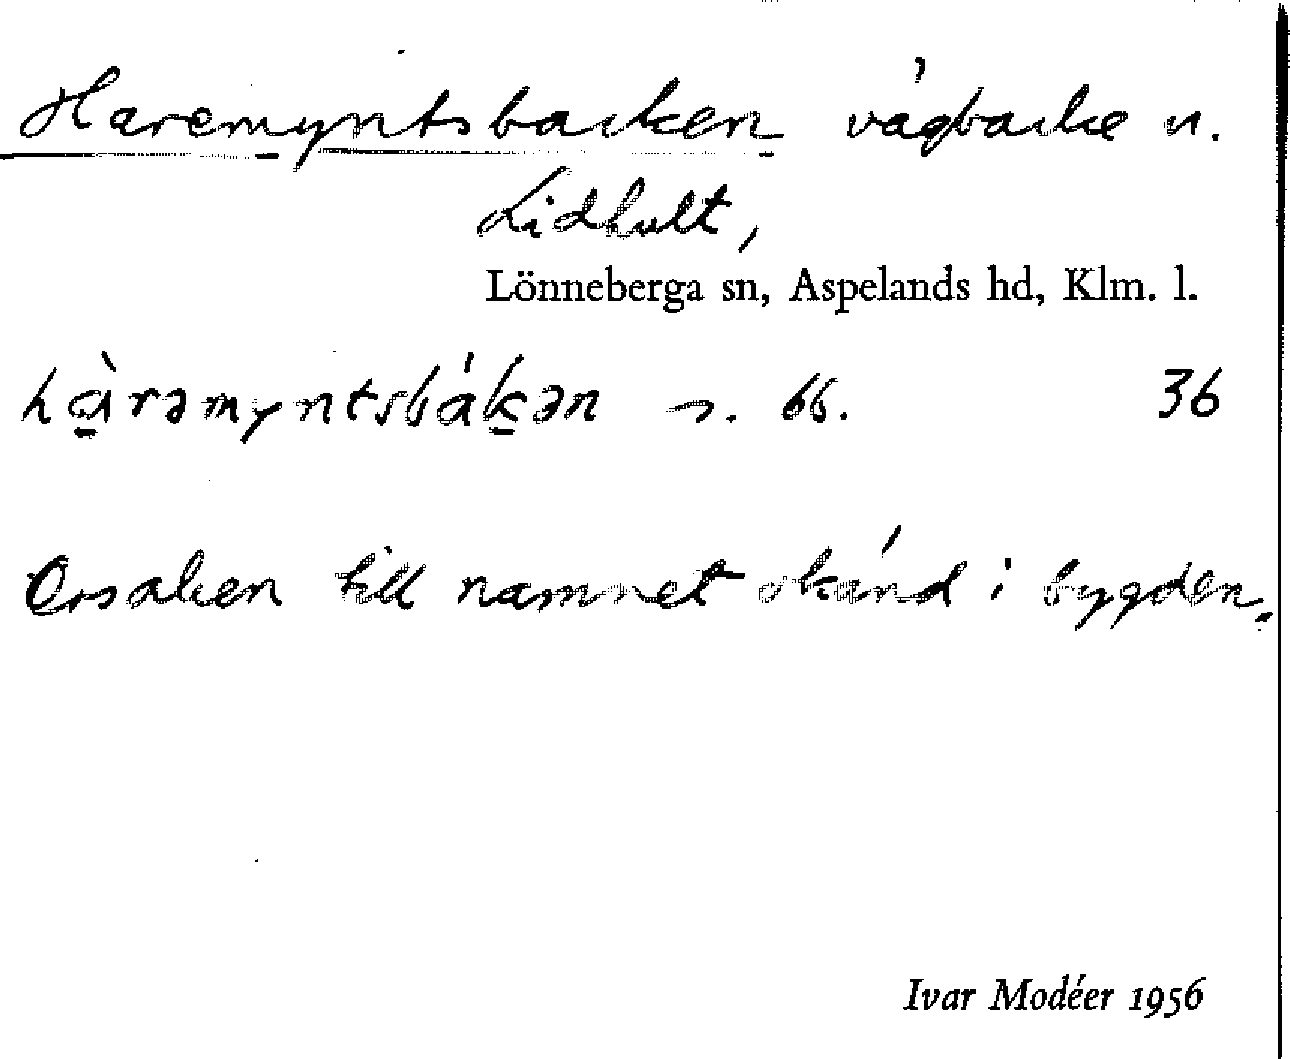 Haremyntsbacken vägbacke n.
Lidhult,
Lönneberga sn, Aspelands hd, Klm. l.
hàrəmyntsbákən n. bb. 36
Orsaken till namnet okänd i bygden.
Ivar Modéer 1956